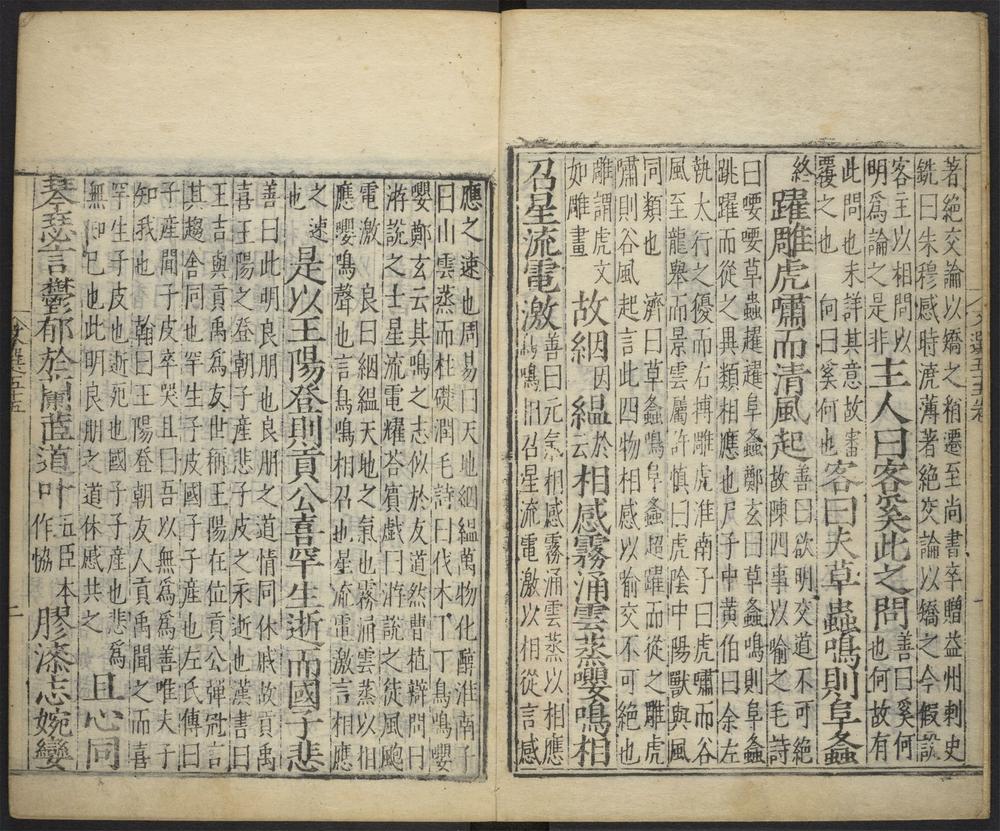 著絕交論以矯之稍遷至尚書卒贈益州刺史
銑曰朱穆感時澆薄著絕交論以矯之今假設
客主以相問以
明爲論之是非
主人曰客奚此之問
善曰奚何
也何故有
此問也未詳其意故審
覆之也　何曰奚何也
客曰夫草蟲鳴則阜螽
終
躍雕虎嘯而清風起
善曰欲明交道不可絕
故陳四事以喻之毛詩
曰喓喓草蟲趯趯阜螽鄭玄曰草螽鳴則阜螽
跳躍而從之異類相應也尸子中黄伯曰余左
執太行之優而右搏雕虎淮南子曰虎嘯而谷
風至龍舉而景雲屬許慎曰虎陰中陽獸與風
同類也　濟曰草螽鳴阜螽超躍而從之雕虎
嘯則谷風起言此四物相感以喻交不可絕也
雕謂虎文
如雕畫
故絪因縕於云相感霧涌雲蒸嚶鳴相
召星流電激
善曰元氣相感霧涌雲蒸以相應
鳥鳴相召星流電激以相從言感
應之速也周易曰天地絪縕萬物化醇淮南子
曰山雲蒸而柱礎潤毛詩曰伐木丁丁鳥鳴嚶
嚶鄭玄云其鳴之志似於友道然曹植辯問曰
游說之士星流電耀荅賓戲曰游說之徒風颮
電激　良曰絪縕天地之氣也霧涌雲蒸以相
應嚶鳴聲也言鳥鳴相召也星流電激言相應
之速
也
是以王陽登則貢公喜罕生逝而國子悲
善曰此明良朋也良朋之道情同休戚故貢禹
喜王陽之登朝子產悲子皮之永逝也漢書曰
王吉與貢禹爲友世稱王陽在位貢公彈冠言
其趨舍同也罕生子皮國子子產也左氏傳曰
子產聞子皮卒哭且曰吾以無爲爲善唯夫子
知我也　翰曰王陽登朝友人貢禹聞之而喜
罕生子皮也逝死也國子子產也悲爲
無知己也此明良朋之道休慼共之
且心同
琴瑟言鬱郁於蘭茝道叶
五臣本
作協
膠漆志婉孌
文選五十五
二